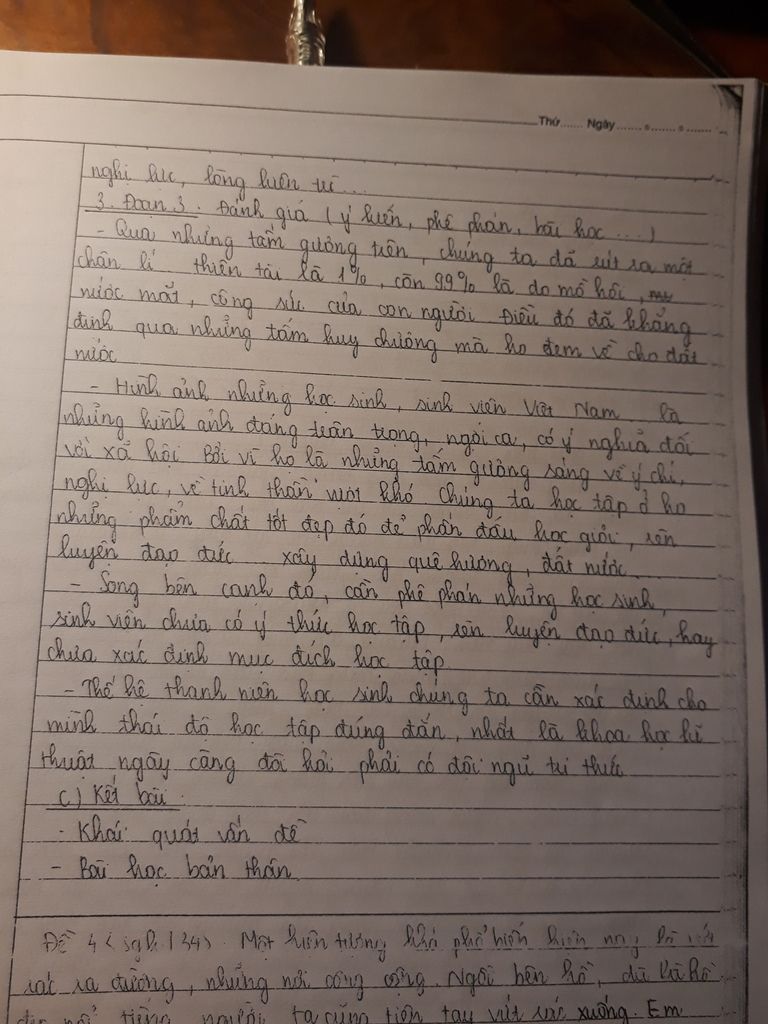 Thứ...... Ngày.......
nghị lực, lòng kiên trì...
3. Đoạn 3. Đánh giá (ý kiến, phê phán, bài học ...)
- Qua những tấm gương trên, chúng ta đã rút ra một
chân lí thiên tài là 1%, còn 99% là do mồ hôi,
nước mắt, công sức của con người Điều đó đã khẳng
định qua những tấm huy chương mà họ đem về cho đất
nước
- Hình ảnh những học sinh, sinh viên Việt Nam là
những hình ảnh đáng trân trọng, ngợi ca, có ý nghĩa đối
với xã hội Bởi vì họ là những tấm gương sáng về ý chí,
nghị lực, về tinh thần vượt khó Chúng ta học tập ở họ
những phẩm chất tốt đẹp đó để phấn đấu học giỏi, rèn
luyện đạo đức xây dựng quê hương, đất nước.
- Song bên cạnh đó, cần phê phán những học sinh,
sinh viên chưa có ý thức học tập, rèn luyện đạo đức, hay
chưa xác định mục đích học tập
- Thế hệ thanh niên học sinh chúng ta cần xác định cho
mình thái độ học tập đúng đắn, nhất là khoa học kĩ
thuật ngày càng đòi hỏi phải có đội ngũ tri thức
c) Kết bài
- Khái quát vấn đề
- Bài học bản thân
Đề 4 (sgk/34). Một hiện tượng khá phổ biến hiện nay là vứt
rác ra đường, những nơi công cộng. Ngồi bên hồ, dù là hồ
đẹp nổi tiếng người ta cũng tiện tay vứt rác xuống. Em